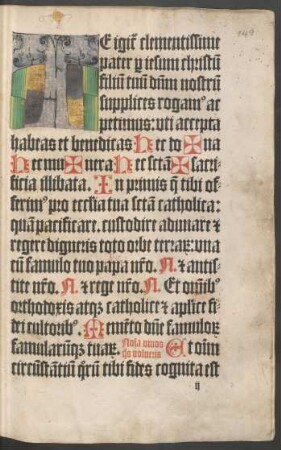 TE igit̃ clementissime
pater ꝑ iesum christũ
filiũ tuũ dñm nostrũ
supplices rogamꝰ ac
petimus: vti accepta
habeas et benedicas Hec do ✠ na
Hec mu ✠ nera Hec sctã ✠ sacri-
ficia illibata. In primis q̃ tibi of
ferimꝰ pro ecclia tua sctã catholica:
quã pacificare, custodire adunare ⁊
regere digneris toto orbe terraꝝ: vna
cũ famulo tuo papa nr̃o. N. ⁊ antis-
tite nr̃o. N. ⁊ rege nr̃o. N. Et om̃ibꝰ
orthodoxis atqꝫ catholice ⁊ apl̃ice fi
dei cultoribꝰ. Memẽto dñe famuloꝝ
famularũqꝫ tuaꝝ. Et oĩm
circũstãtiũ q̃rũ tibi fides cognita est
ij